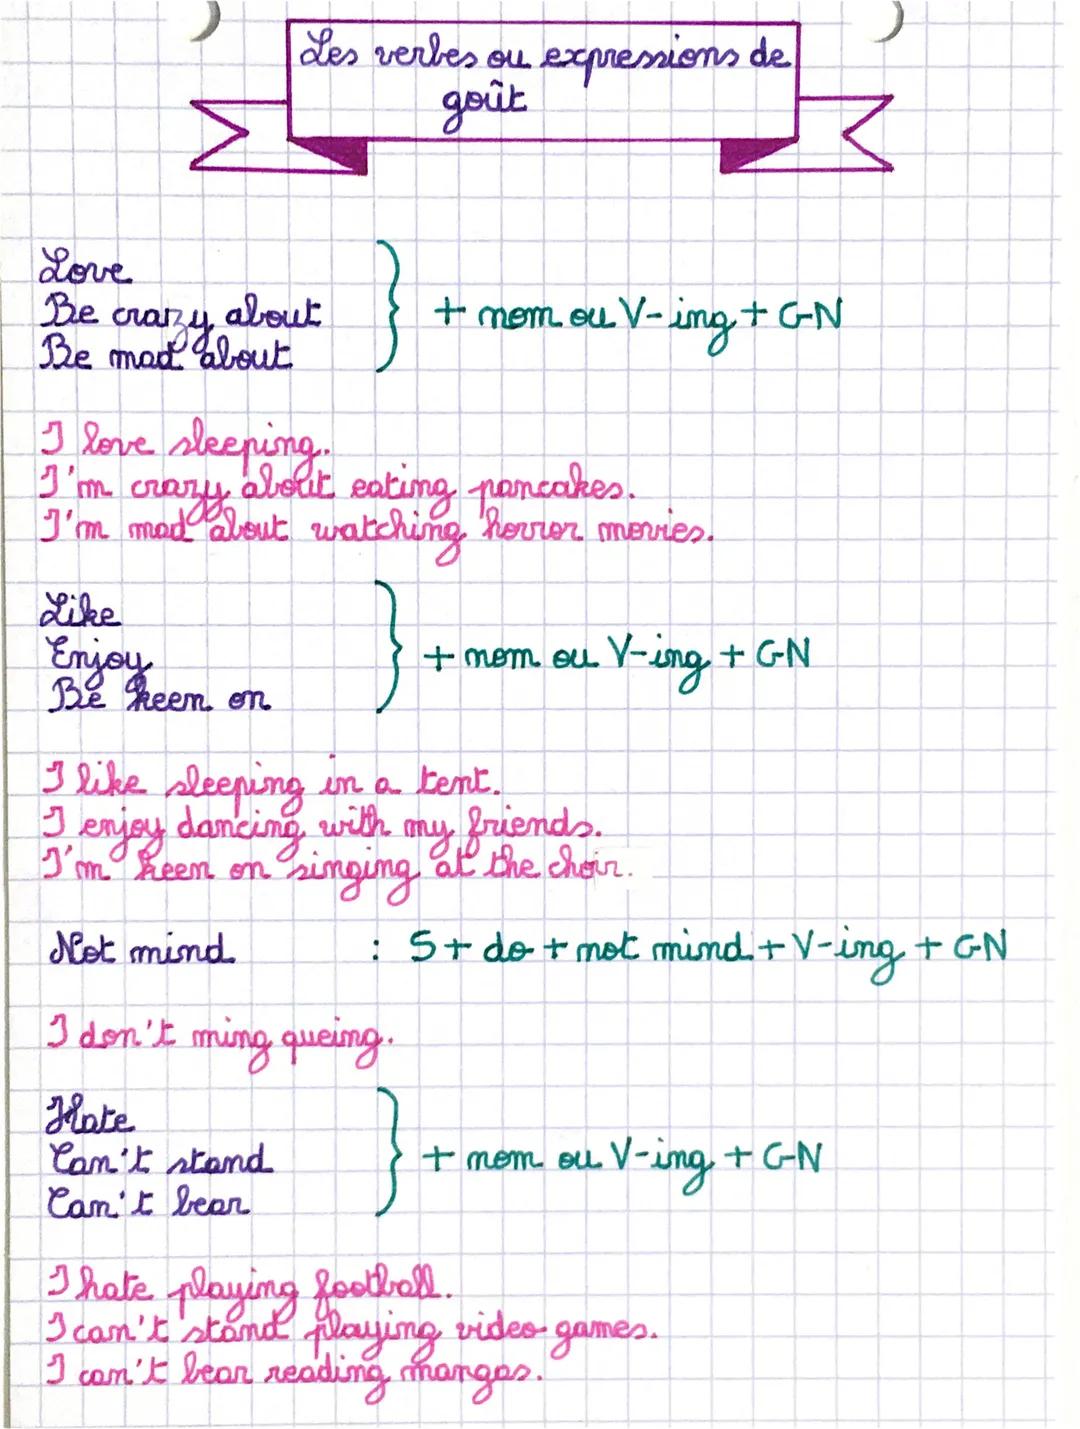 Les verbes ou expressions de
goût
Love
Be crazy about
Be mad about
+ nom ou V-ing + GN
I love sleeping.
I'm crazy about eating pancakes.
I'm mad about watching horror movies.
Like
Enjoy
Be keen on
+ nom ou V-ing + GN
I like sleeping in a tent.
I enjoy dancing with my friends.
I'm keen on singing at the choir.
Not mind : S + do + not mind + V-ing + GN
I don't ming queing.
Hate
Can't stand
Can't bear
+ nom ou V-ing + GN
I hate playing football.
I can't stand playing video games.
I can't bear reading mangas.